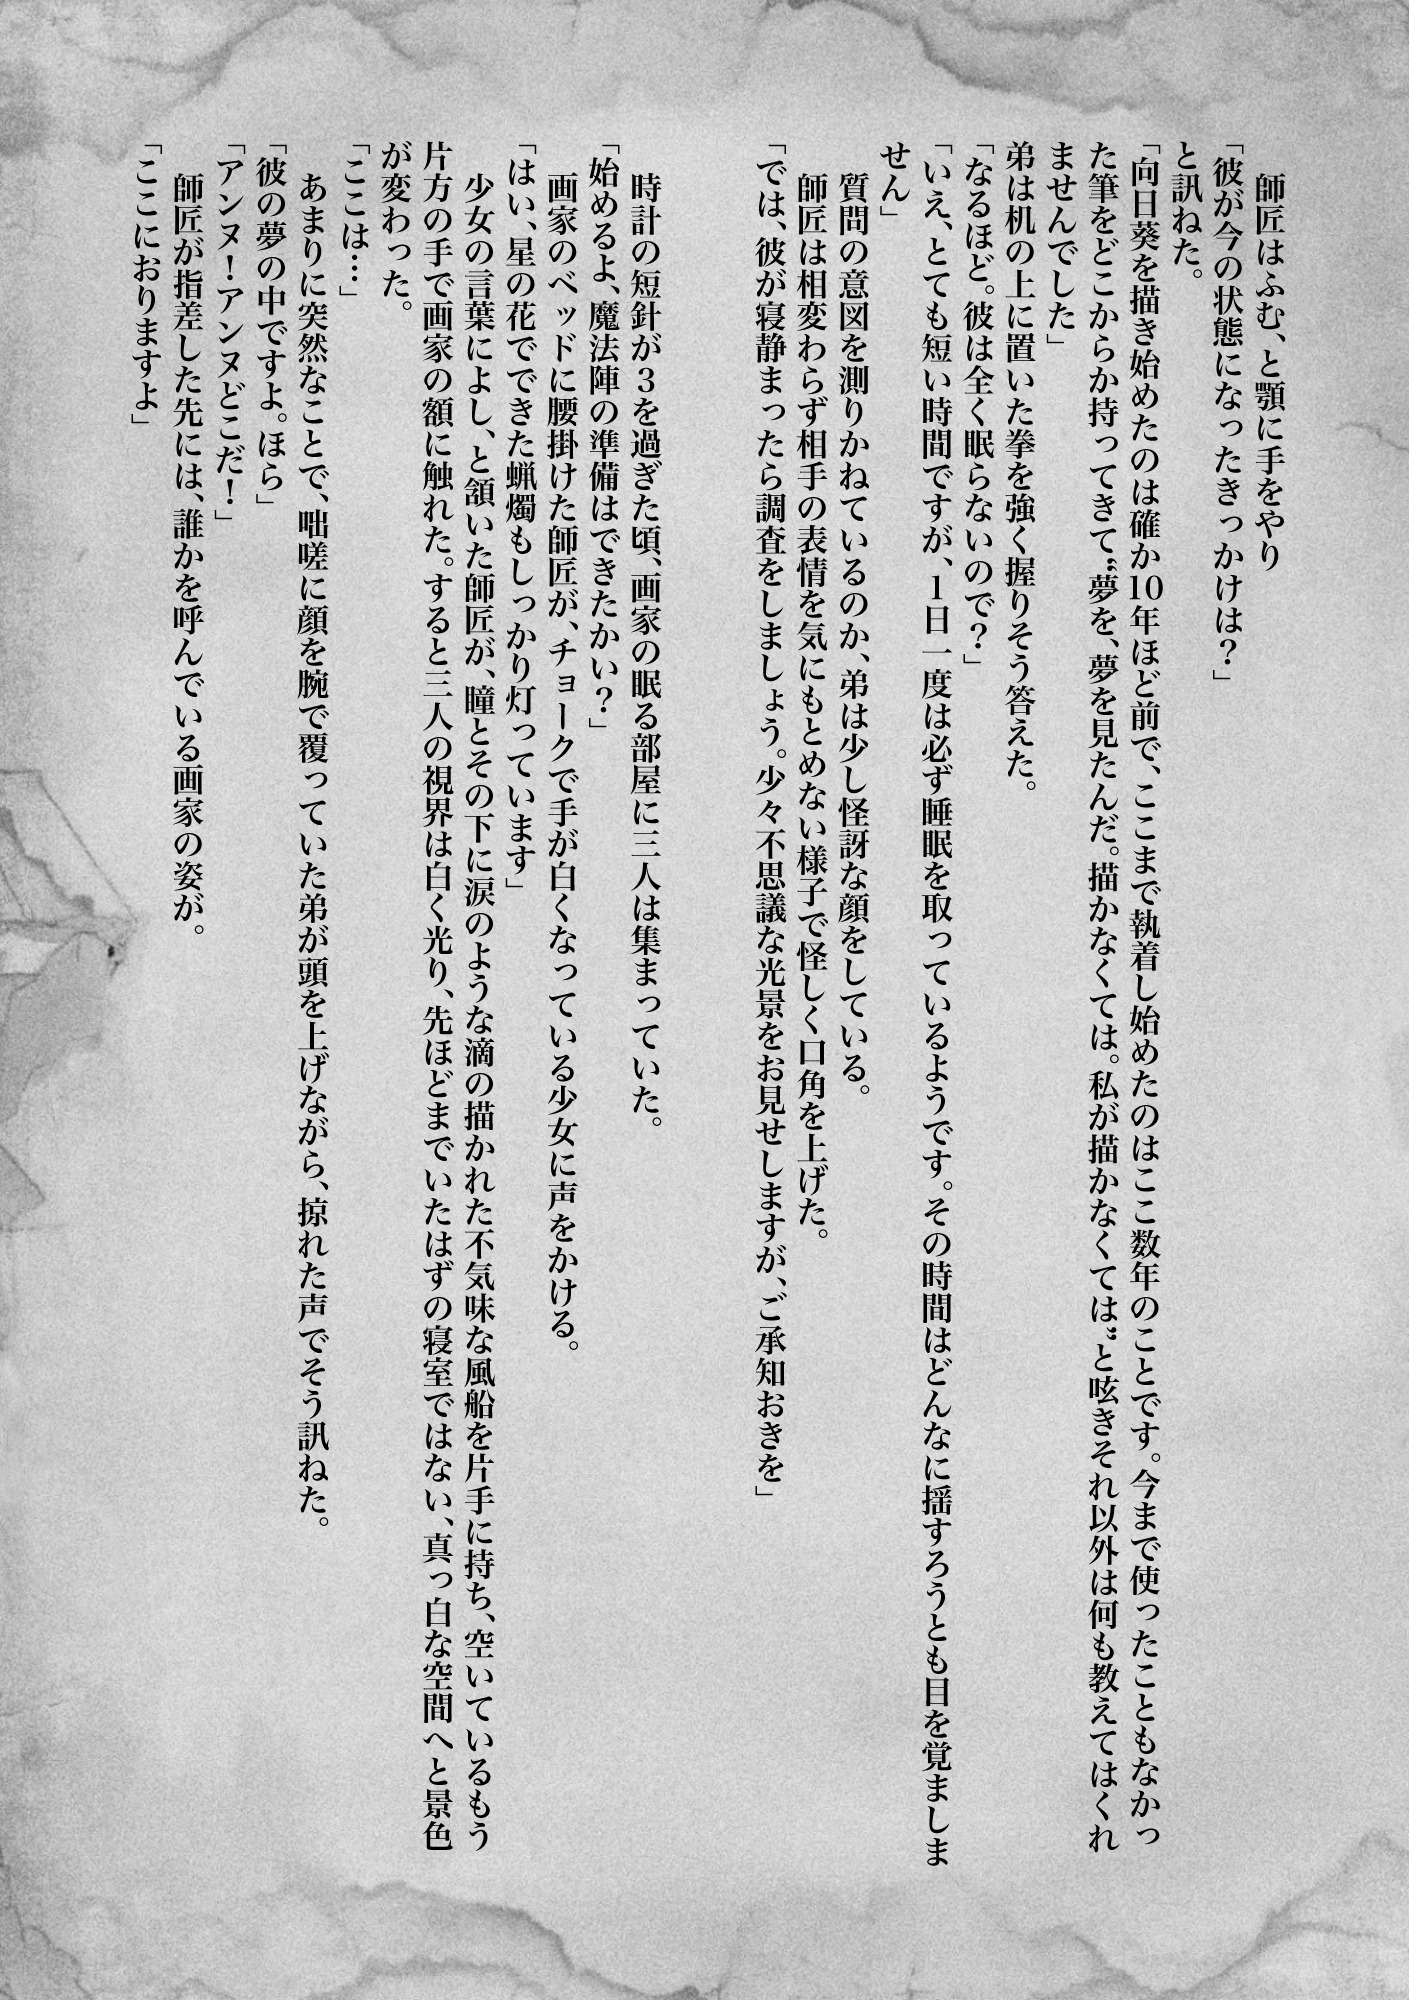 師匠はふむ、と顎に手をやり
「彼が今の状態になったきっかけは？」
と訊ねた。
「向日葵を描き始めたのは確か10年ほど前で、ここまで執着し始めたのはここ数年のことです。今まで使ったこともなかっ
た筆をどこからか持ってきて〝夢を、夢を見たんだ。描かなくては。私が描かなくては〟と呟きそれ以外は何も教えてはくれ
ませんでした」
弟は机の上に置いた拳を強く握りそう答えた。
「なるほど。彼は全く眠らないので？」
「いえ、とても短い時間ですが、1日一度は必ず睡眠を取っているようです。その時間はどんなに揺すろうとも目を覚ましま
せん」
質問の意図を測りかねているのか、弟は少し怪訝な顔をしている。
師匠は相変わらず相手の表情を気にもとめない様子で怪しく口角を上げた。
「では、彼が寝静まったら調査をしましょう。少々不思議な光景をお見せしますが、ご承知おきを」
時計の短針が3を過ぎた頃、画家の眠る部屋に三人は集まっていた。
「始めるよ、魔法陣の準備はできたかい？」
画家のベッドに腰掛けた師匠が、チョークで手が白くなっている少女に声をかける。
「はい、星の花でできた蝋燭もしっかり灯っています」
少女の言葉によし、と頷いた師匠が、瞳とその下に涙のような滴の描かれた不気味な風船を片手に持ち、空いているもう
片方の手で画家の額に触れた。すると三人の視界は白く光り、先ほどまでいたはずの寝室ではない、真っ白な空間へと景色
が変わった。
「ここは…」
あまりに突然なことで、咄嗟に顔を腕で覆っていた弟が頭を上げながら、掠れた声でそう訊ねた。
「彼の夢の中ですよ。ほら」
「アンヌ！アンヌどこだ！」
師匠が指差した先には、誰かを呼んでいる画家の姿が。
「ここにおりますよ」